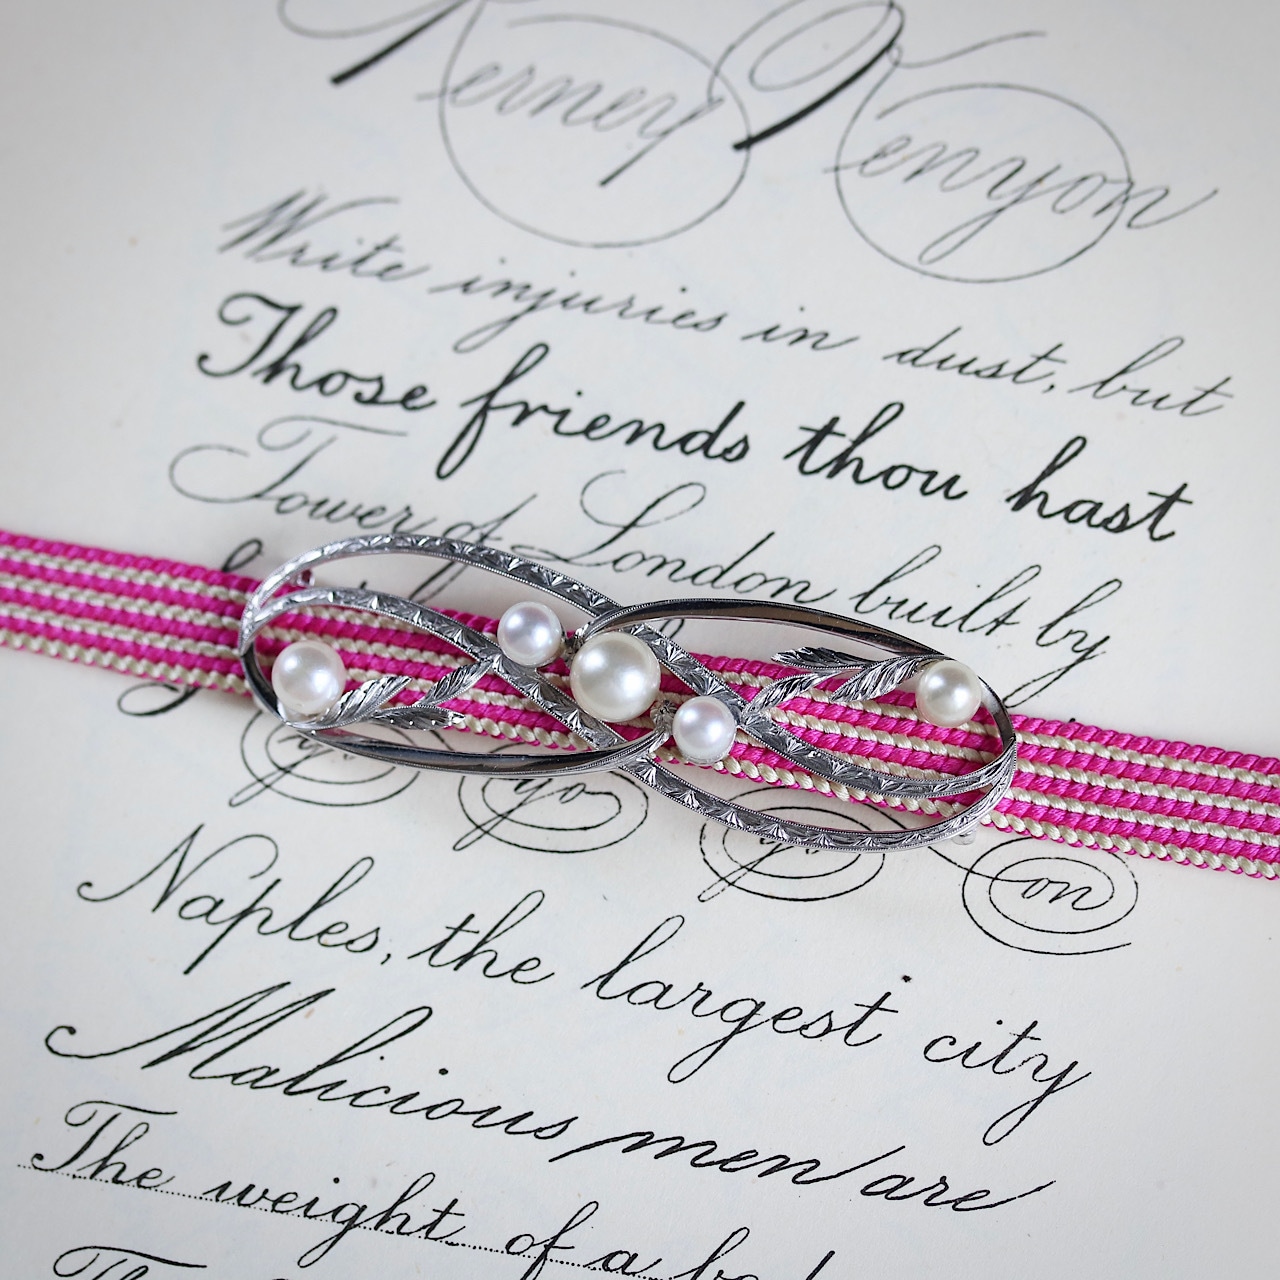 Kerney Kenyon
Write injuries in dust, but
Those friends thou hast
Tower of London built by
yo yo on
Naples, the largest city
Malicious men are
The weight of a